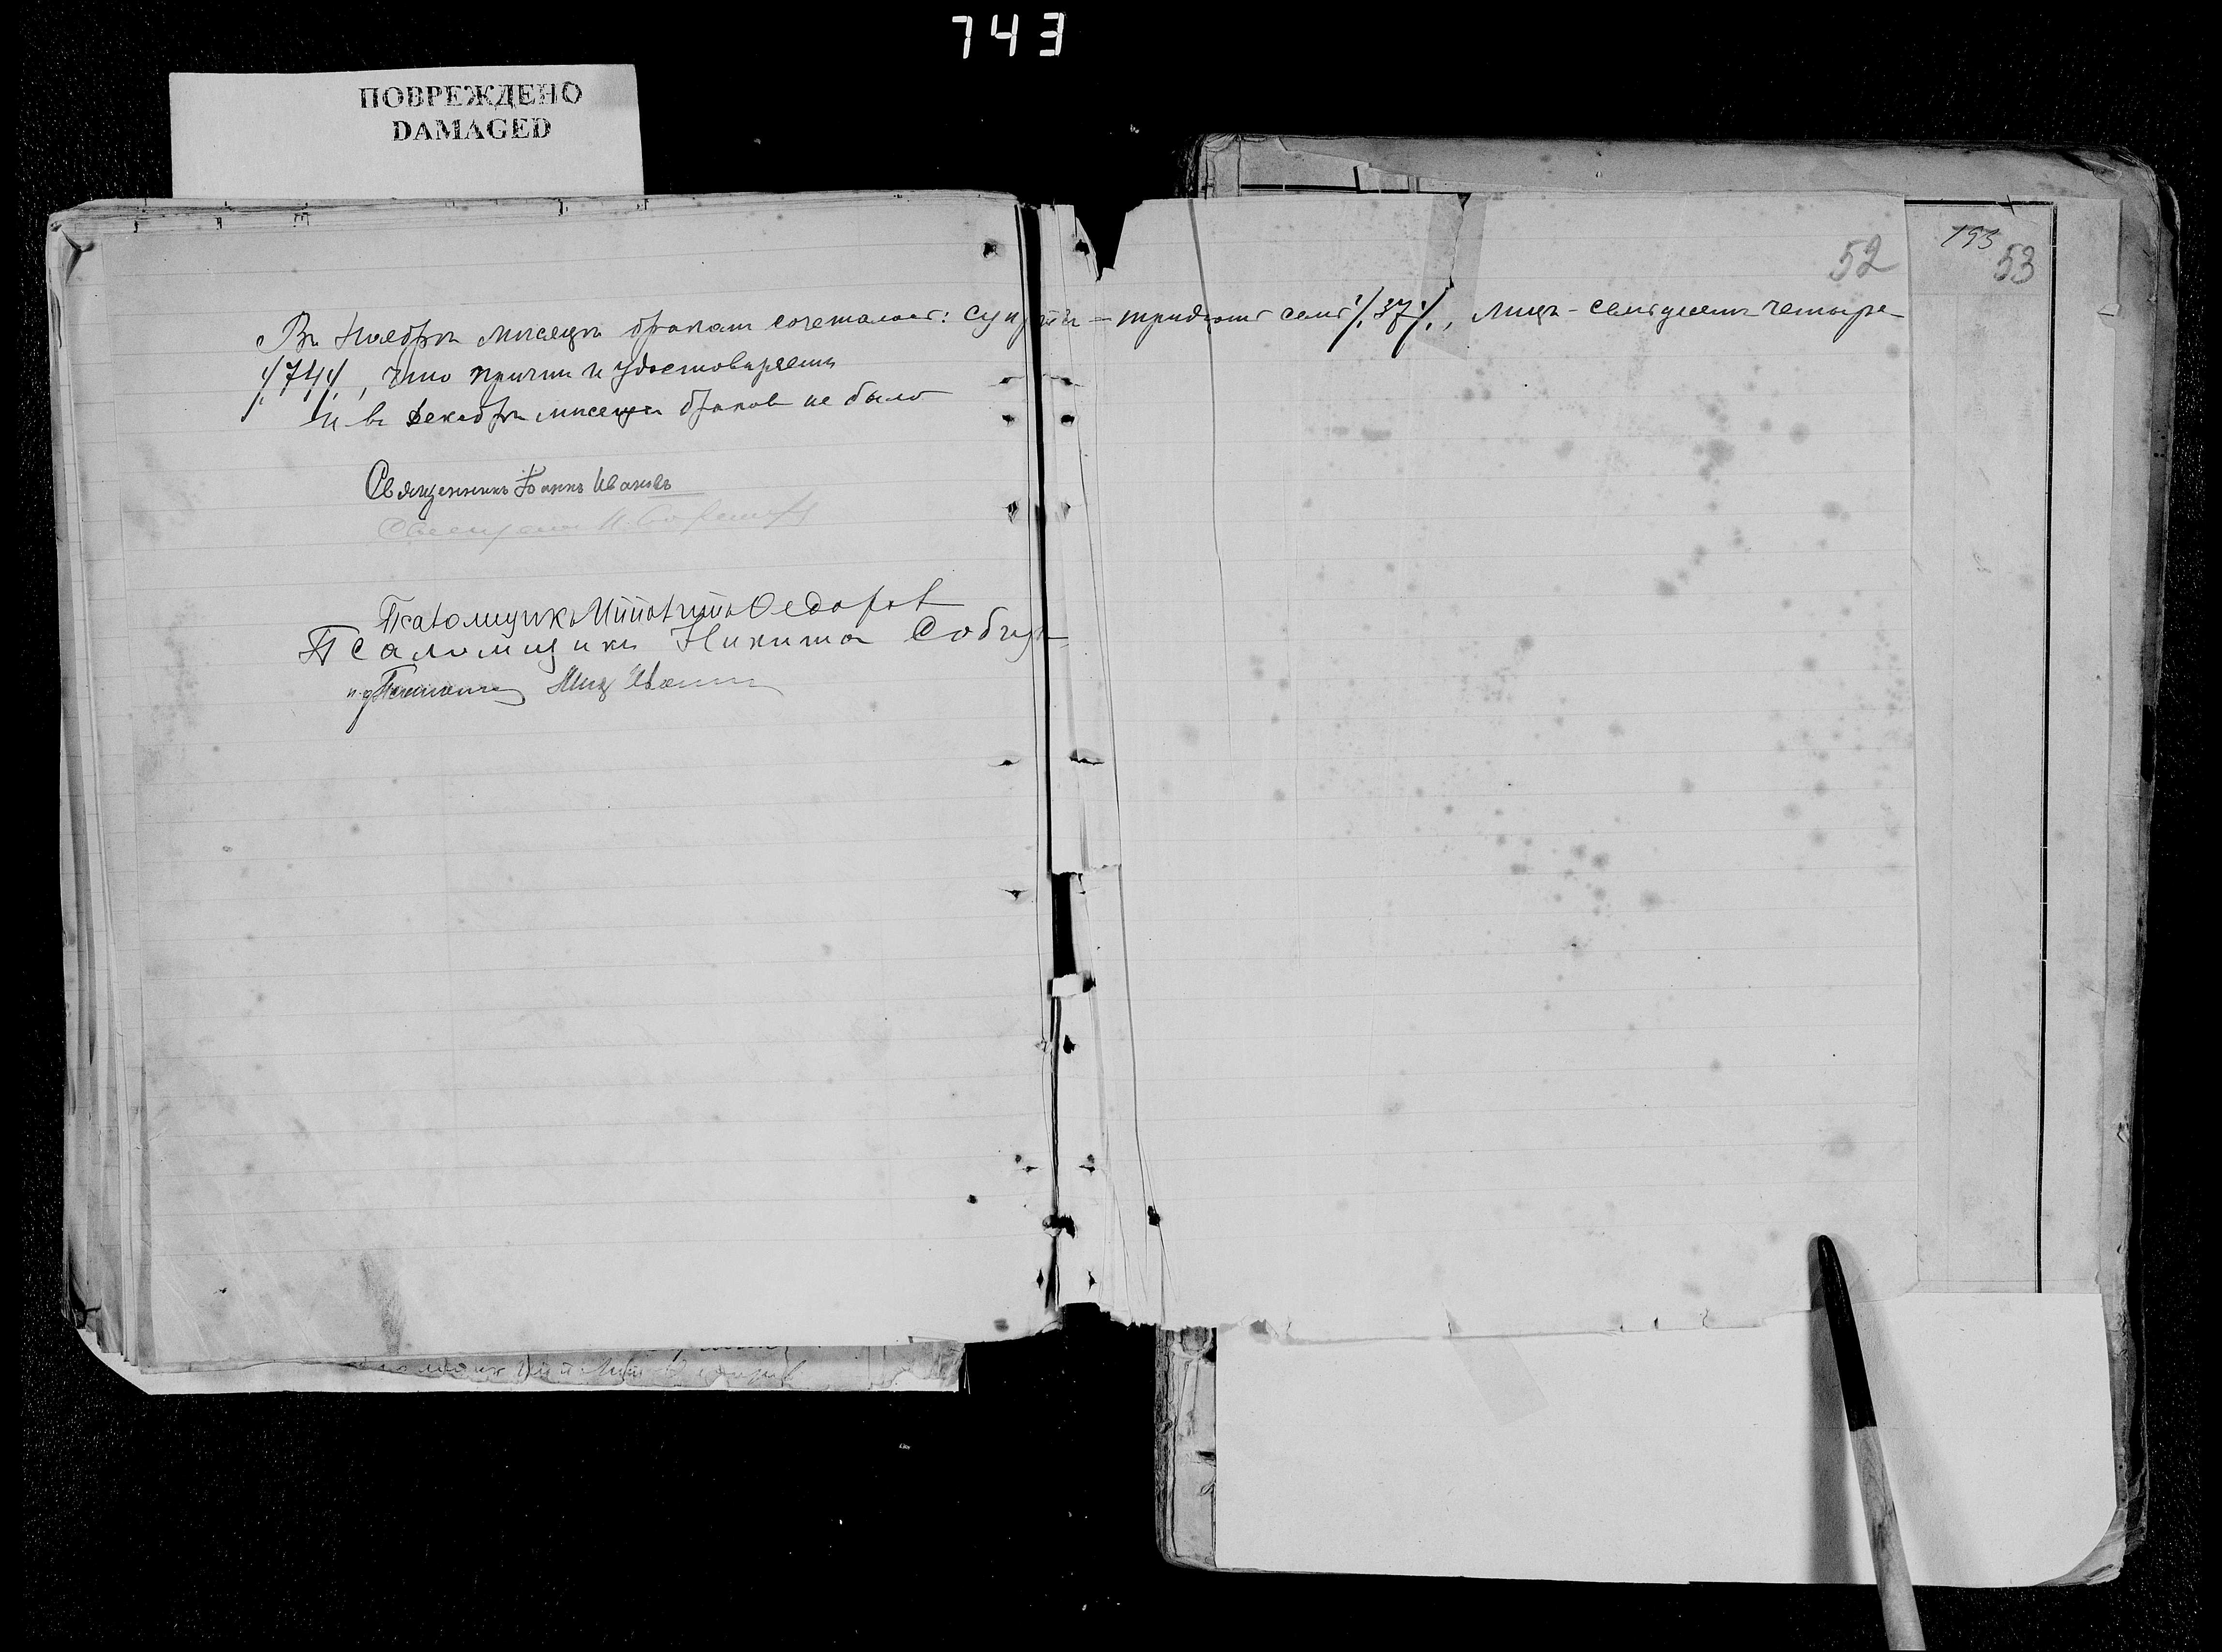 743
ПОВРЕЖДЕНО
DAMAGED
193
52
53
Въ Ноябрѣ мѣсяцѣ бракомъ сочеталось: супр – тридцать семь /37/, лицъ – семьдесятъ четыре
/74/, что причтъ и удостовѣряетъ
и въ Декабрѣ мѣсяцѣ браков не было
Священникъ Іоаннъ Ивановъ
Псаломщикъ Ипполитъ Федоров
Псаломщикъ Никита
и. д. Псаломщ